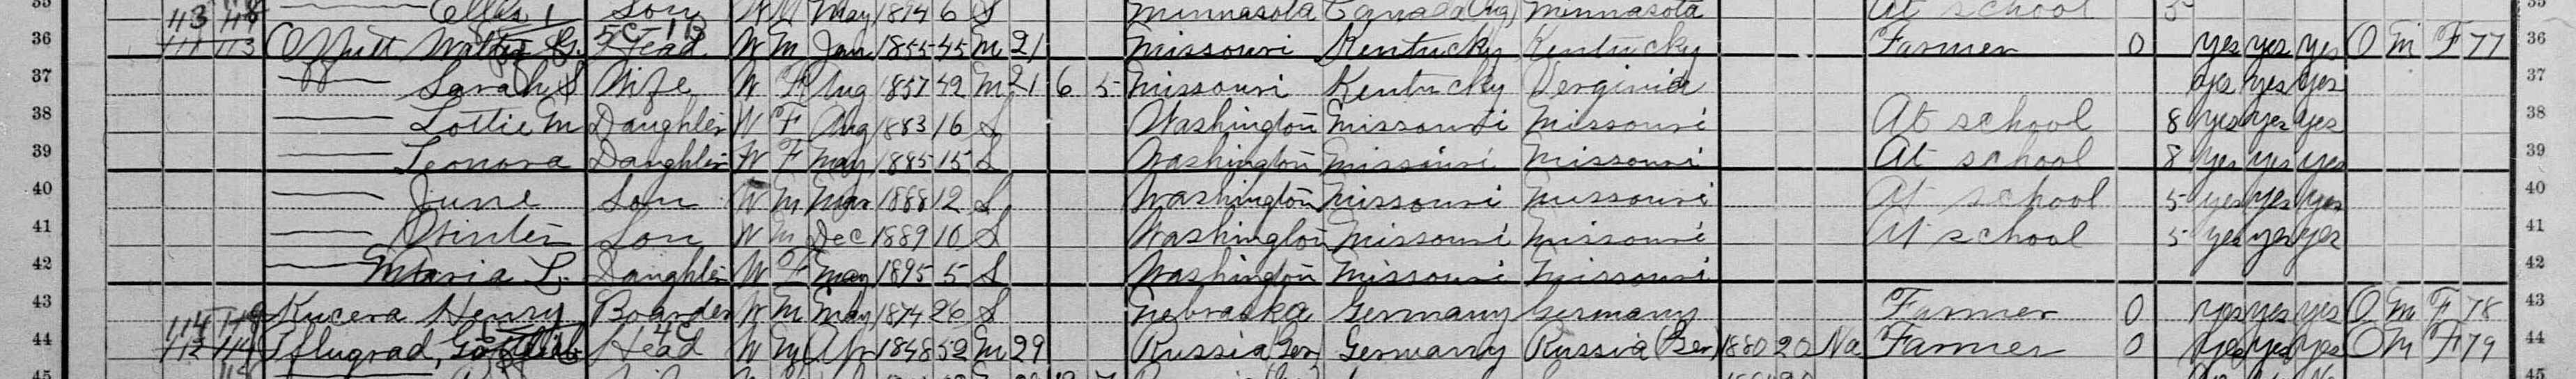 Son W M May 1894 6 S Minnasota Canada (Eng) Minnasota At school 5
36 113 Offutt Walter G. Head W M Jan 1855 45 M 21 Missouri Kentucky Kentucky Farmer 0 yes yes yes O M F 77 36
37 —— Sarah S Wife W F Aug 1857 42 M 21 6 5 Missouri Kentucky Verginia yes yes yes 37
38 —— Lottie M Daughter W F Aug 1883 16 S Washington Missouri Missouri At school 8 yes yes yes 38
39 —— Leonora Daughter W F May 1885 15 S Washington Missouri Missouri At school 8 yes yes yes 39
40 —— June Son W M Mar 1888 12 S Washington Missouri Missouri At school 5 yes yes yes 40
41 —— Son W M Dec 1889 10 S Washington Missouri Missouri At school 5 yes yes yes 41
42 —— Maria L. Daughter W F May 1895 5 S Washington Missouri Missouri 42
43 Kucera Henry Boarder W M May 1874 26 S Nebraska Germany Germany Farmer 0 yes yes yes O M F 78 43
44 112 114 Pflugrad, Gottlieb Head W M Apr 1848 52 M 29 Russia (Ger) Germany Russia (Ger) 1880 20 Na Farmer 0 yes yes yes O M F 79 44
45 45